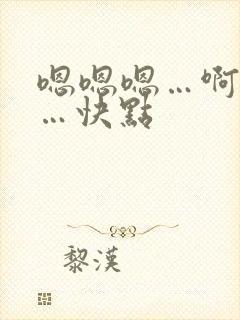 嗯嗯嗯…啊
…快點
黎漢